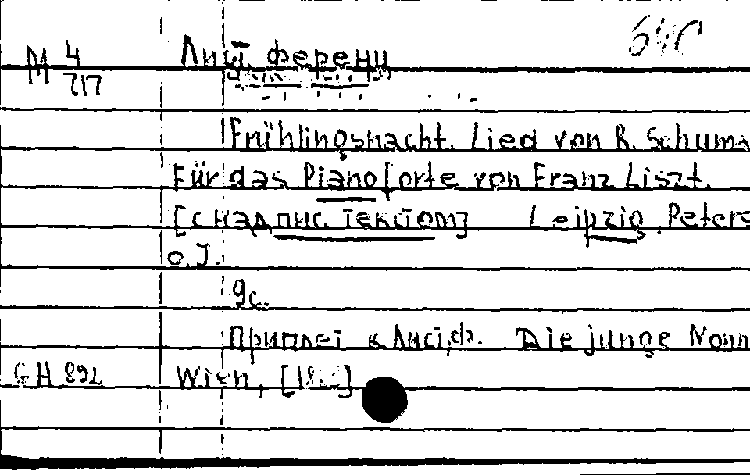 М 4/717 Лист, Ференц
Frühlingsnacht. Lied von R. Schuma
Für das Pianoforte von Franz Liszt.
[с надпис. текстом] Leipzig, Peters
o.J.
9с.
Приплет к Лист, Ф. Die junge Nonn
GH 892 Wien,